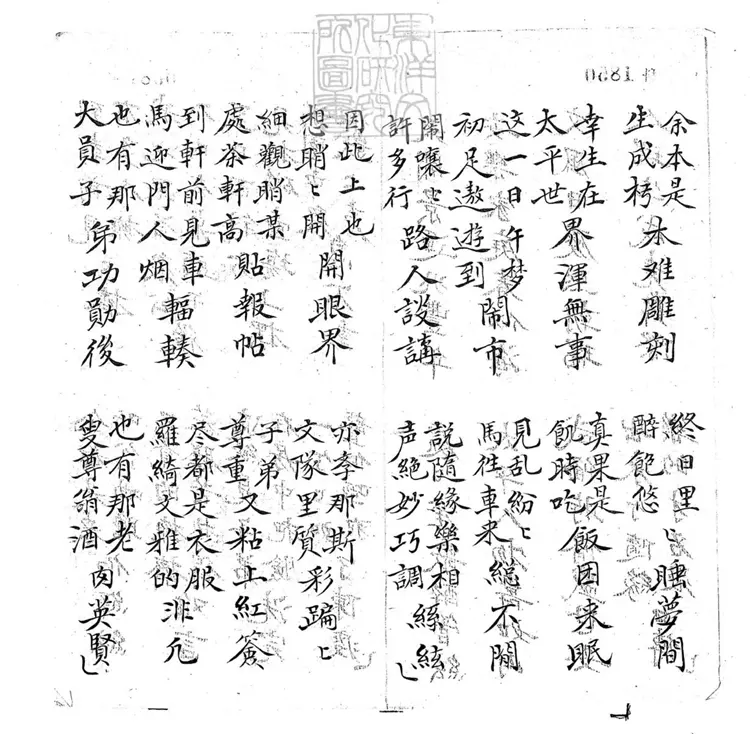 余本是生成朽木难雕刻
終日里醉飽悠ヒ睡夢間
幸生在太平世界渾無事
真果是飢時吃飯困来眠
这一日午梦初足遨遊到鬧市
見乱紛ヒ馬往車来總不閒
鬧嚷ヒ許多行路人談講
説隨緣樂相声絶妙巧調絲絃
因此上也想瞧ヒ開開眼界
亦李那斯文隊里質彩蹁ヒ
細觀瞧某處茶軒高貼報帖
子弟尊重又粘上紅簽
到軒前見車馬迎門人烟輻輳
尽都是衣服羅綺文雅的非凡
也有那大員子弟功勛後
也有那老叟尊翁酒肉英賢